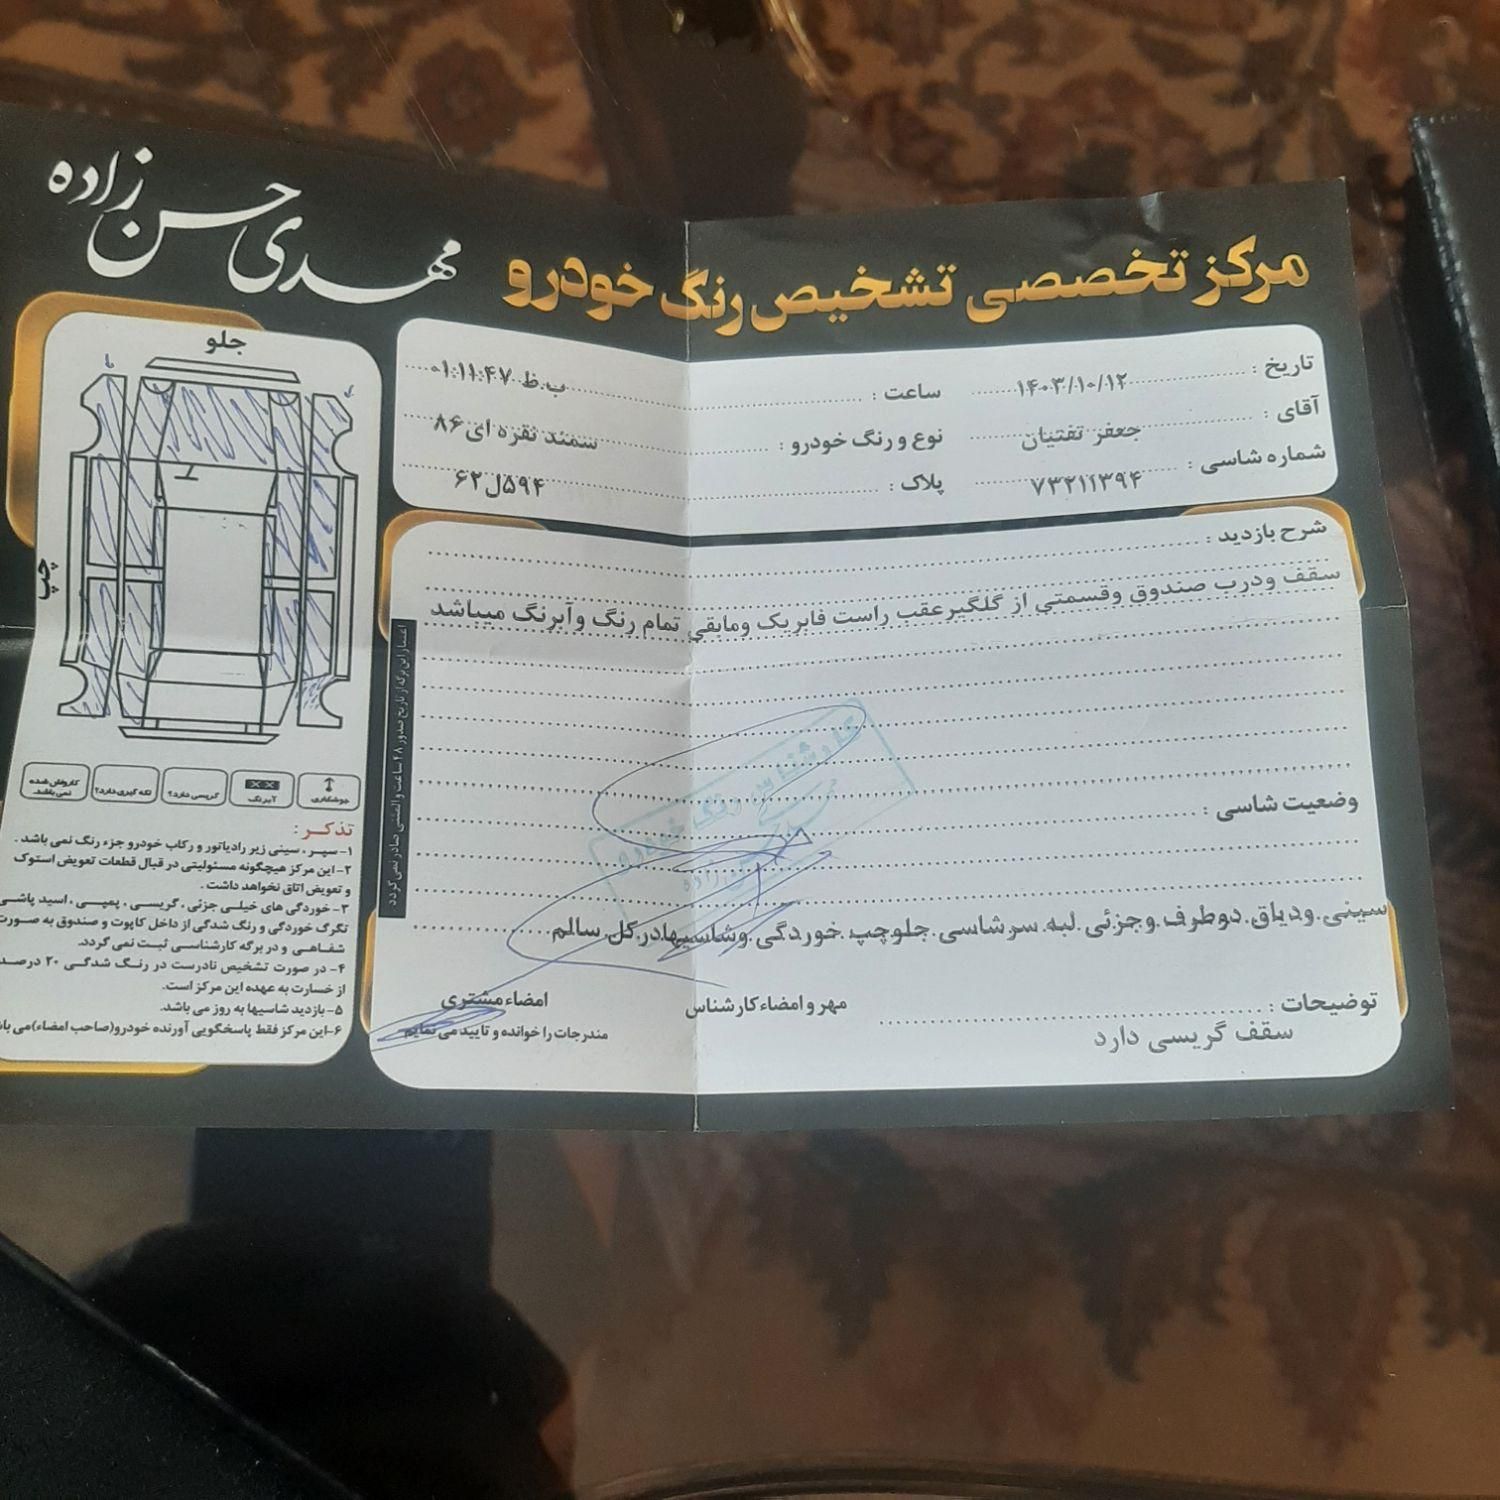 مرکز تخصصی تشخیص رنگ خودرو
مهدی حسن زاده
تاریخ : ۱۴۰۳/۱۰/۱۲ ساعت : ۰۱:۱۱:۴۷ ب.ظ
آقای : جعفر تفتیان نوع و رنگ خودرو : سمند نقره ای ۸۶
شماره شاسی : ۷۳۲۱۱۳۹۴ پلاک : ۵۹۴ل۶۲
شرح بازدید :
سقف ودرب صندوق وقسمتی از گلگیرعقب راست فابریک ومابقی تمام رنگ وآبرنگ میباشد
وضعیت شاسی :
سینی ودیاق دوطرف وجزئی لبه سرشاسی جلوچپ خوردگی وشاسیهادرکل سالم
توضیحات :
سقف گریسی دارد
مهر و امضاء کارشناس
امضاء مشتری
مندرجات را خوانده و تایید می نمایم
اعتبار این برگه از تاریخ صدور ۴۸ ساعت و المثنی صادر نمی گردد
کارشناس رنگ خودرو
جلو
چپ
جوشکاری
آبرنگ
گریسی دارد؟
لکه گیری دارد؟
کارواش شده نمی باشد.
تذکر :
۱- سپر ، سینی زیر رادیاتور و رکاب خودرو جزء رنگ نمی باشد .
۲- این مرکز هیچگونه مسئولیتی در قبال قطعات تعویض استوک
و تعویض اتاق نخواهد داشت .
۳- خوردگی های خیلی جزئی ، گریسی ، پمپی ، اسید پاشی
تگرگ خوردگی و رنگ شدگی از داخل کاپوت و صندوق به صورت
شفاهی و در برگه کارشناسی ثبت نمی گردد.
۴- در صورت تشخیص نادرست در رنگ شدگی ۲۰ درصد
از خسارت به عهده این مرکز است.
۵- بازدید شاسیها به روز می باشد.
۶- این مرکز فقط پاسخگویی آورنده خودرو(صاحب امضاء)می با